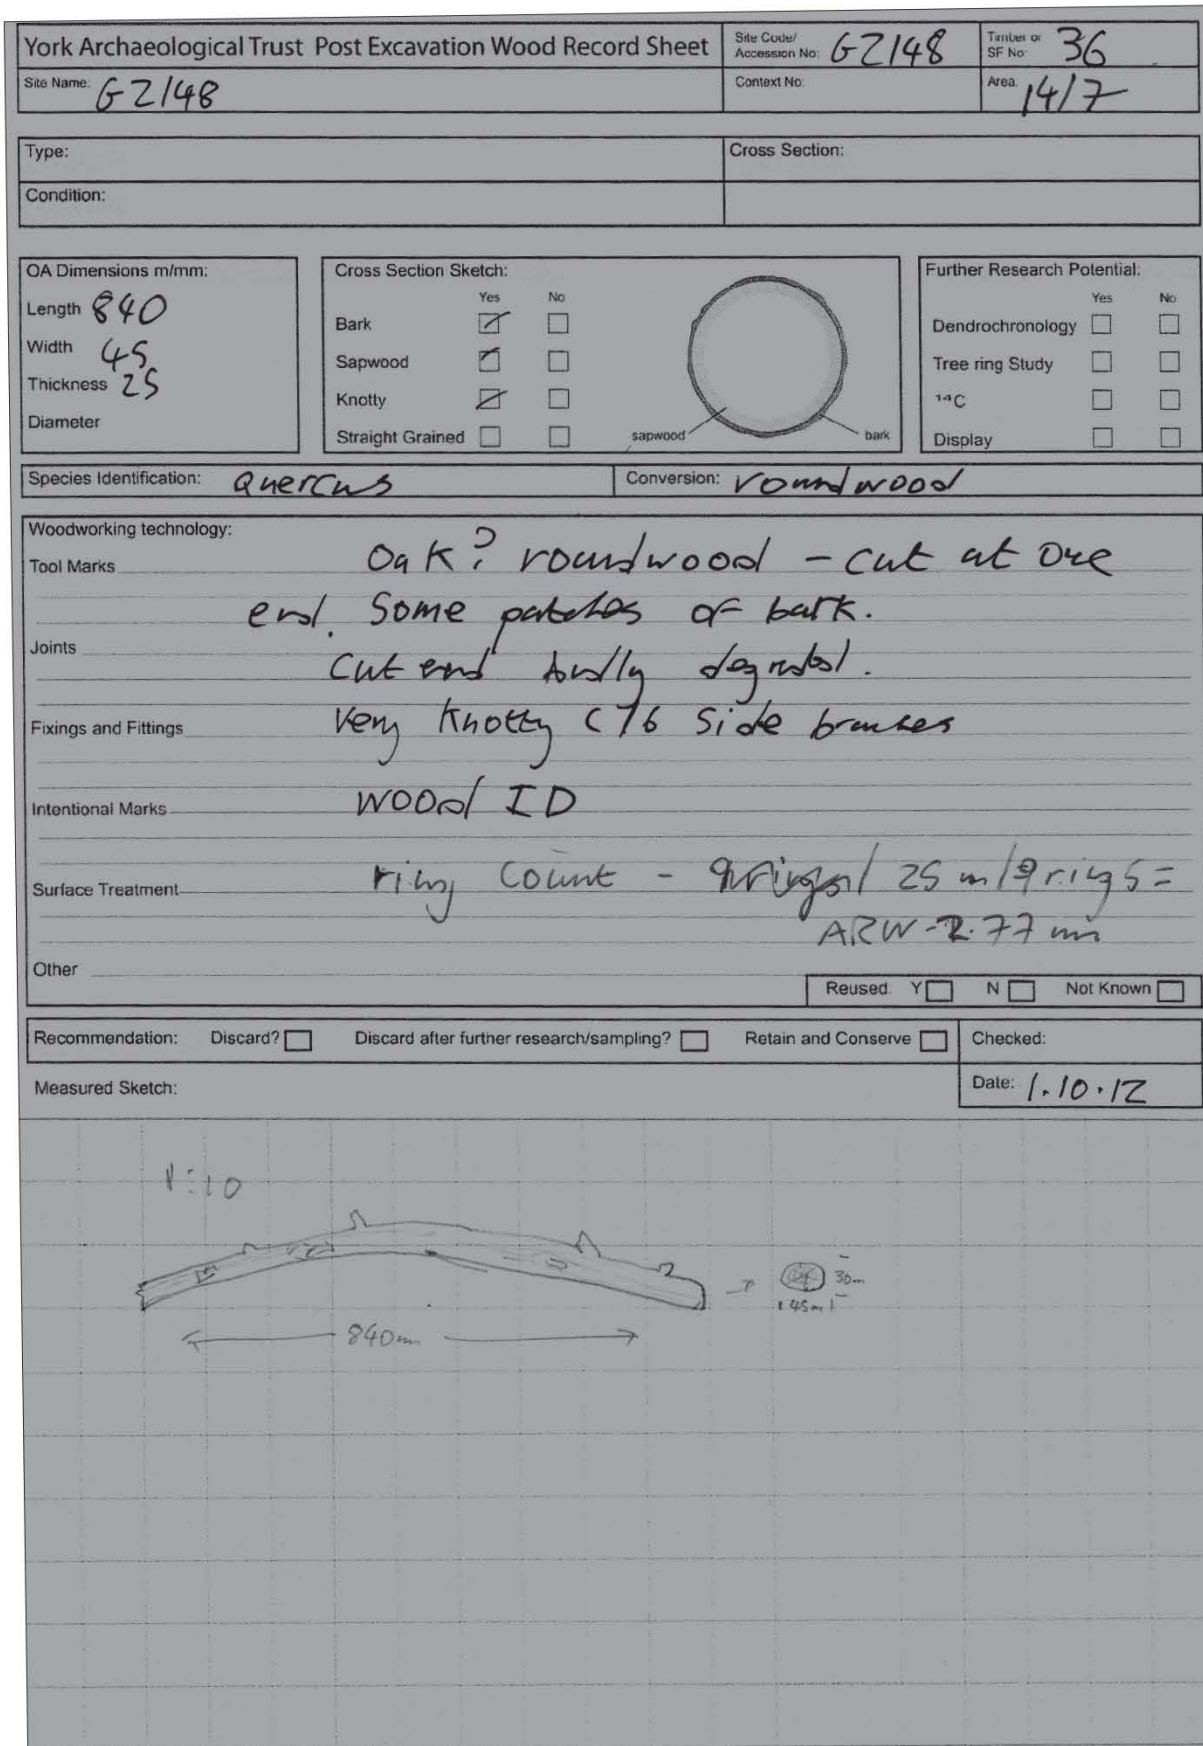 York Archaeological Trust Post Excavation Wood Record Sheet
Site Code/ Accession No: GZ148
Timber or SF No: 36
Site Name: GZ148
Context No:
Area: 14/7
Type:
Cross Section:
Condition:
OA Dimensions m/mm:
Length 840
Width 45
Thickness 25
Diameter
Cross Section Sketch:
Yes No
Bark
Sapwood
Knotty
Straight Grained
sapwood
bark
Further Research Potential:
Yes No
Dendrochronology
Tree ring Study
14C
Display
Species Identification: Quercus
Conversion: roundwood
Woodworking technology:
Tool Marks Oak? roundwood - cut at one
end. Some patches of bark.
Joints
Cut end badly degraded.
Fixings and Fittings Very Knotty C76 Side branches
Intentional Marks Wood ID
Surface Treatment ring Count - 25 m/9 rings =
ARW-2.77 mm
Other
Reused: Y N Not Known
Recommendation: Discard? Discard after further research/sampling? Retain and Conserve
Checked:
Measured Sketch:
Date: 1.10.12
1:10
30m
45m
840mm